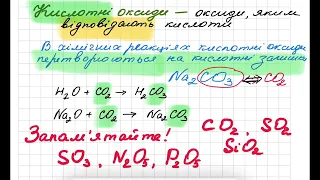 Кислотні оксиди — оксиди, яким
відповідають кислоти
В хімічних реакціях кислотні оксиди
перетворюються на кислотні залишки
Na₂CO₃ ⟺ CO₂
H₂O + CO₂ → H₂CO₃
Na₂O + CO₂ → Na₂CO₃
Запам'ятайте!
CO₂, SO₂
SiO₂
SO₃, N₂O₅, P₂O₅